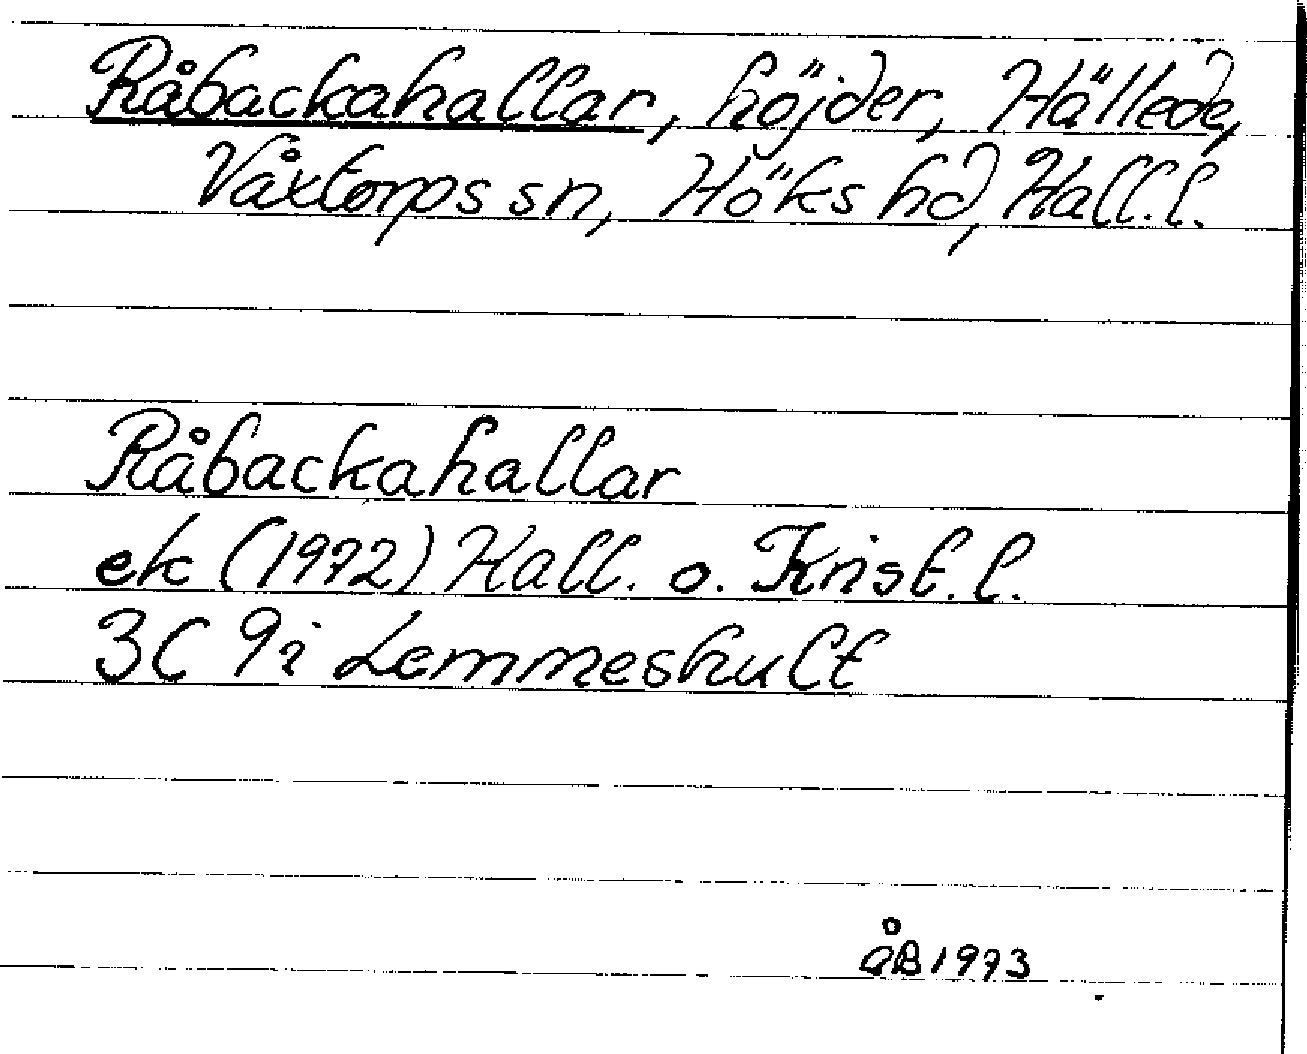 Råbackahallar, höjder, Hällede,
Våxtorps sn, Höks hd, Hall. l.
Råbackahallar
ek (1972) Hall. o. Krist. l.
3C 9i Lemmeshult
åB 1973